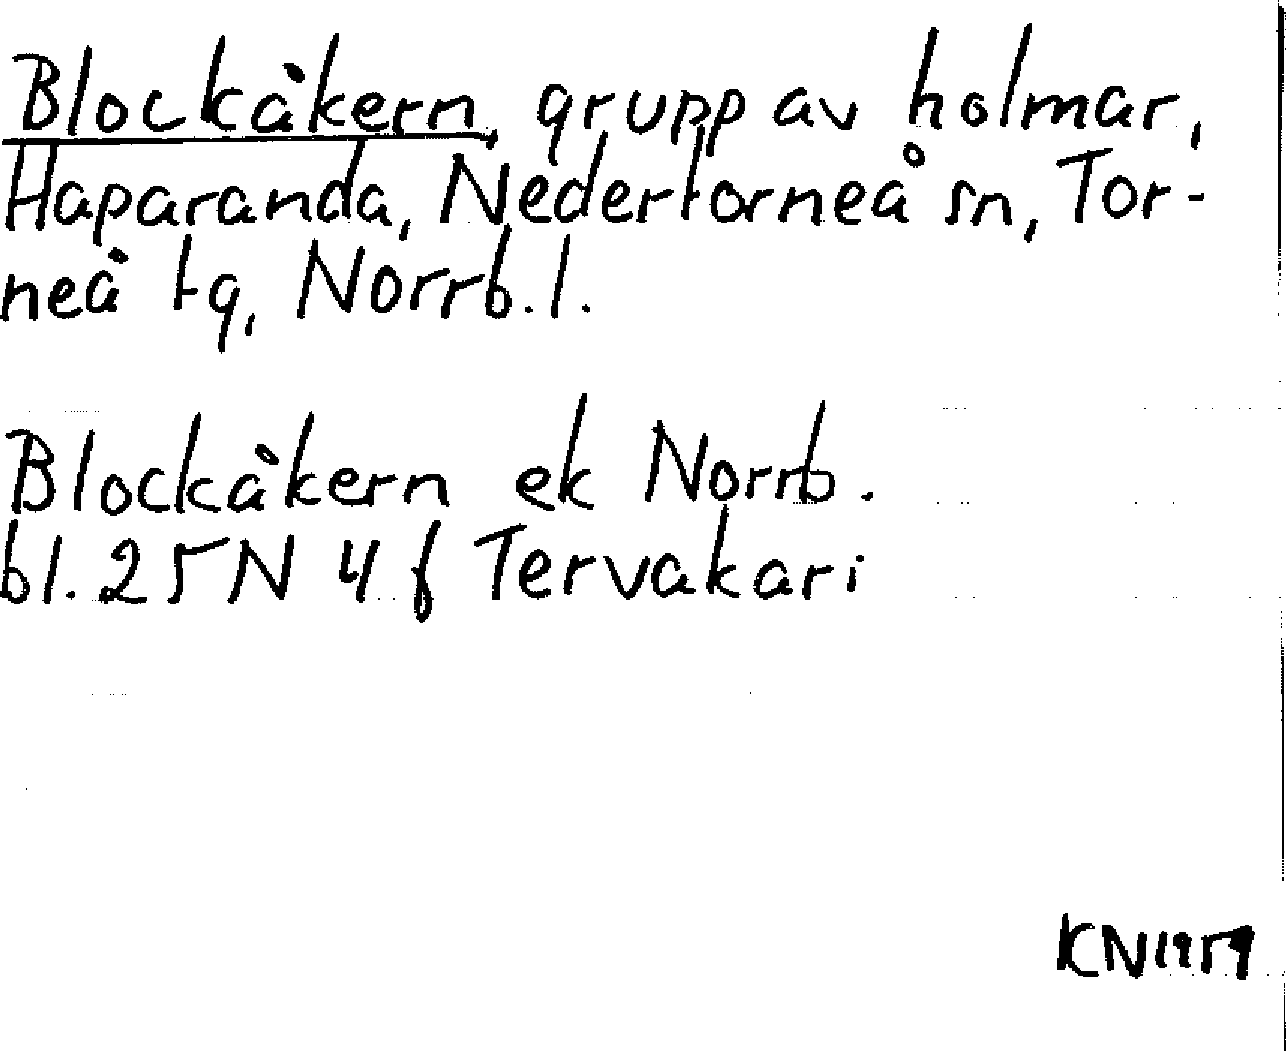 Blockåkern, grupp av holmar,
Haparanda, Nedertorneå sn, Tor-
neå tg, Norrb. l.
Blockåkern ek Norrb.
bl. 25N 4 f Tervakari
KN 1959